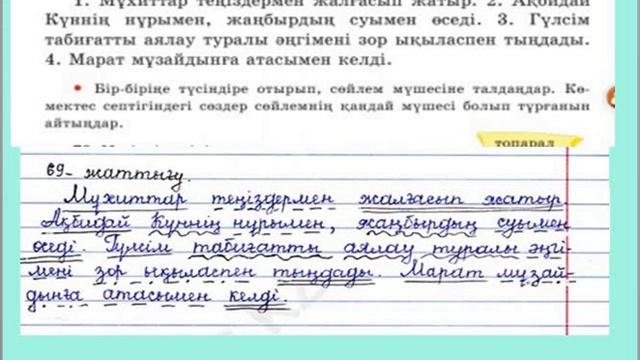 1. Мұхиттар теңіздермен жалғасып жатыр. 2. Ақбидай
Күннің нұрымен, жаңбырдың суымен өседі. 3. Гүлсім
табиғатты аялау туралы әңгімені зор ықыласпен тыңдады.
4. Марат мұзайдынға атасымен келді.
• Бір-біріңе түсіндіре отырып, сөйлем мүшесіне талдаңдар. Кө-
мектес септігіндегі сөздер сөйлемнің қандай мүшесі болып тұрғанын
айтыңдар.
топарал
69- жаттығу.
Мұхиттар теңіздермен жалғасып жатыр.
Ақбидай Күннің нұрымен, жаңбырдың суымен
өседі. Гүлсім табиғатты аялау туралы әңгі-
мені зор ықыласпен тыңдады. Марат мұзай-
дынға атасымен келді.